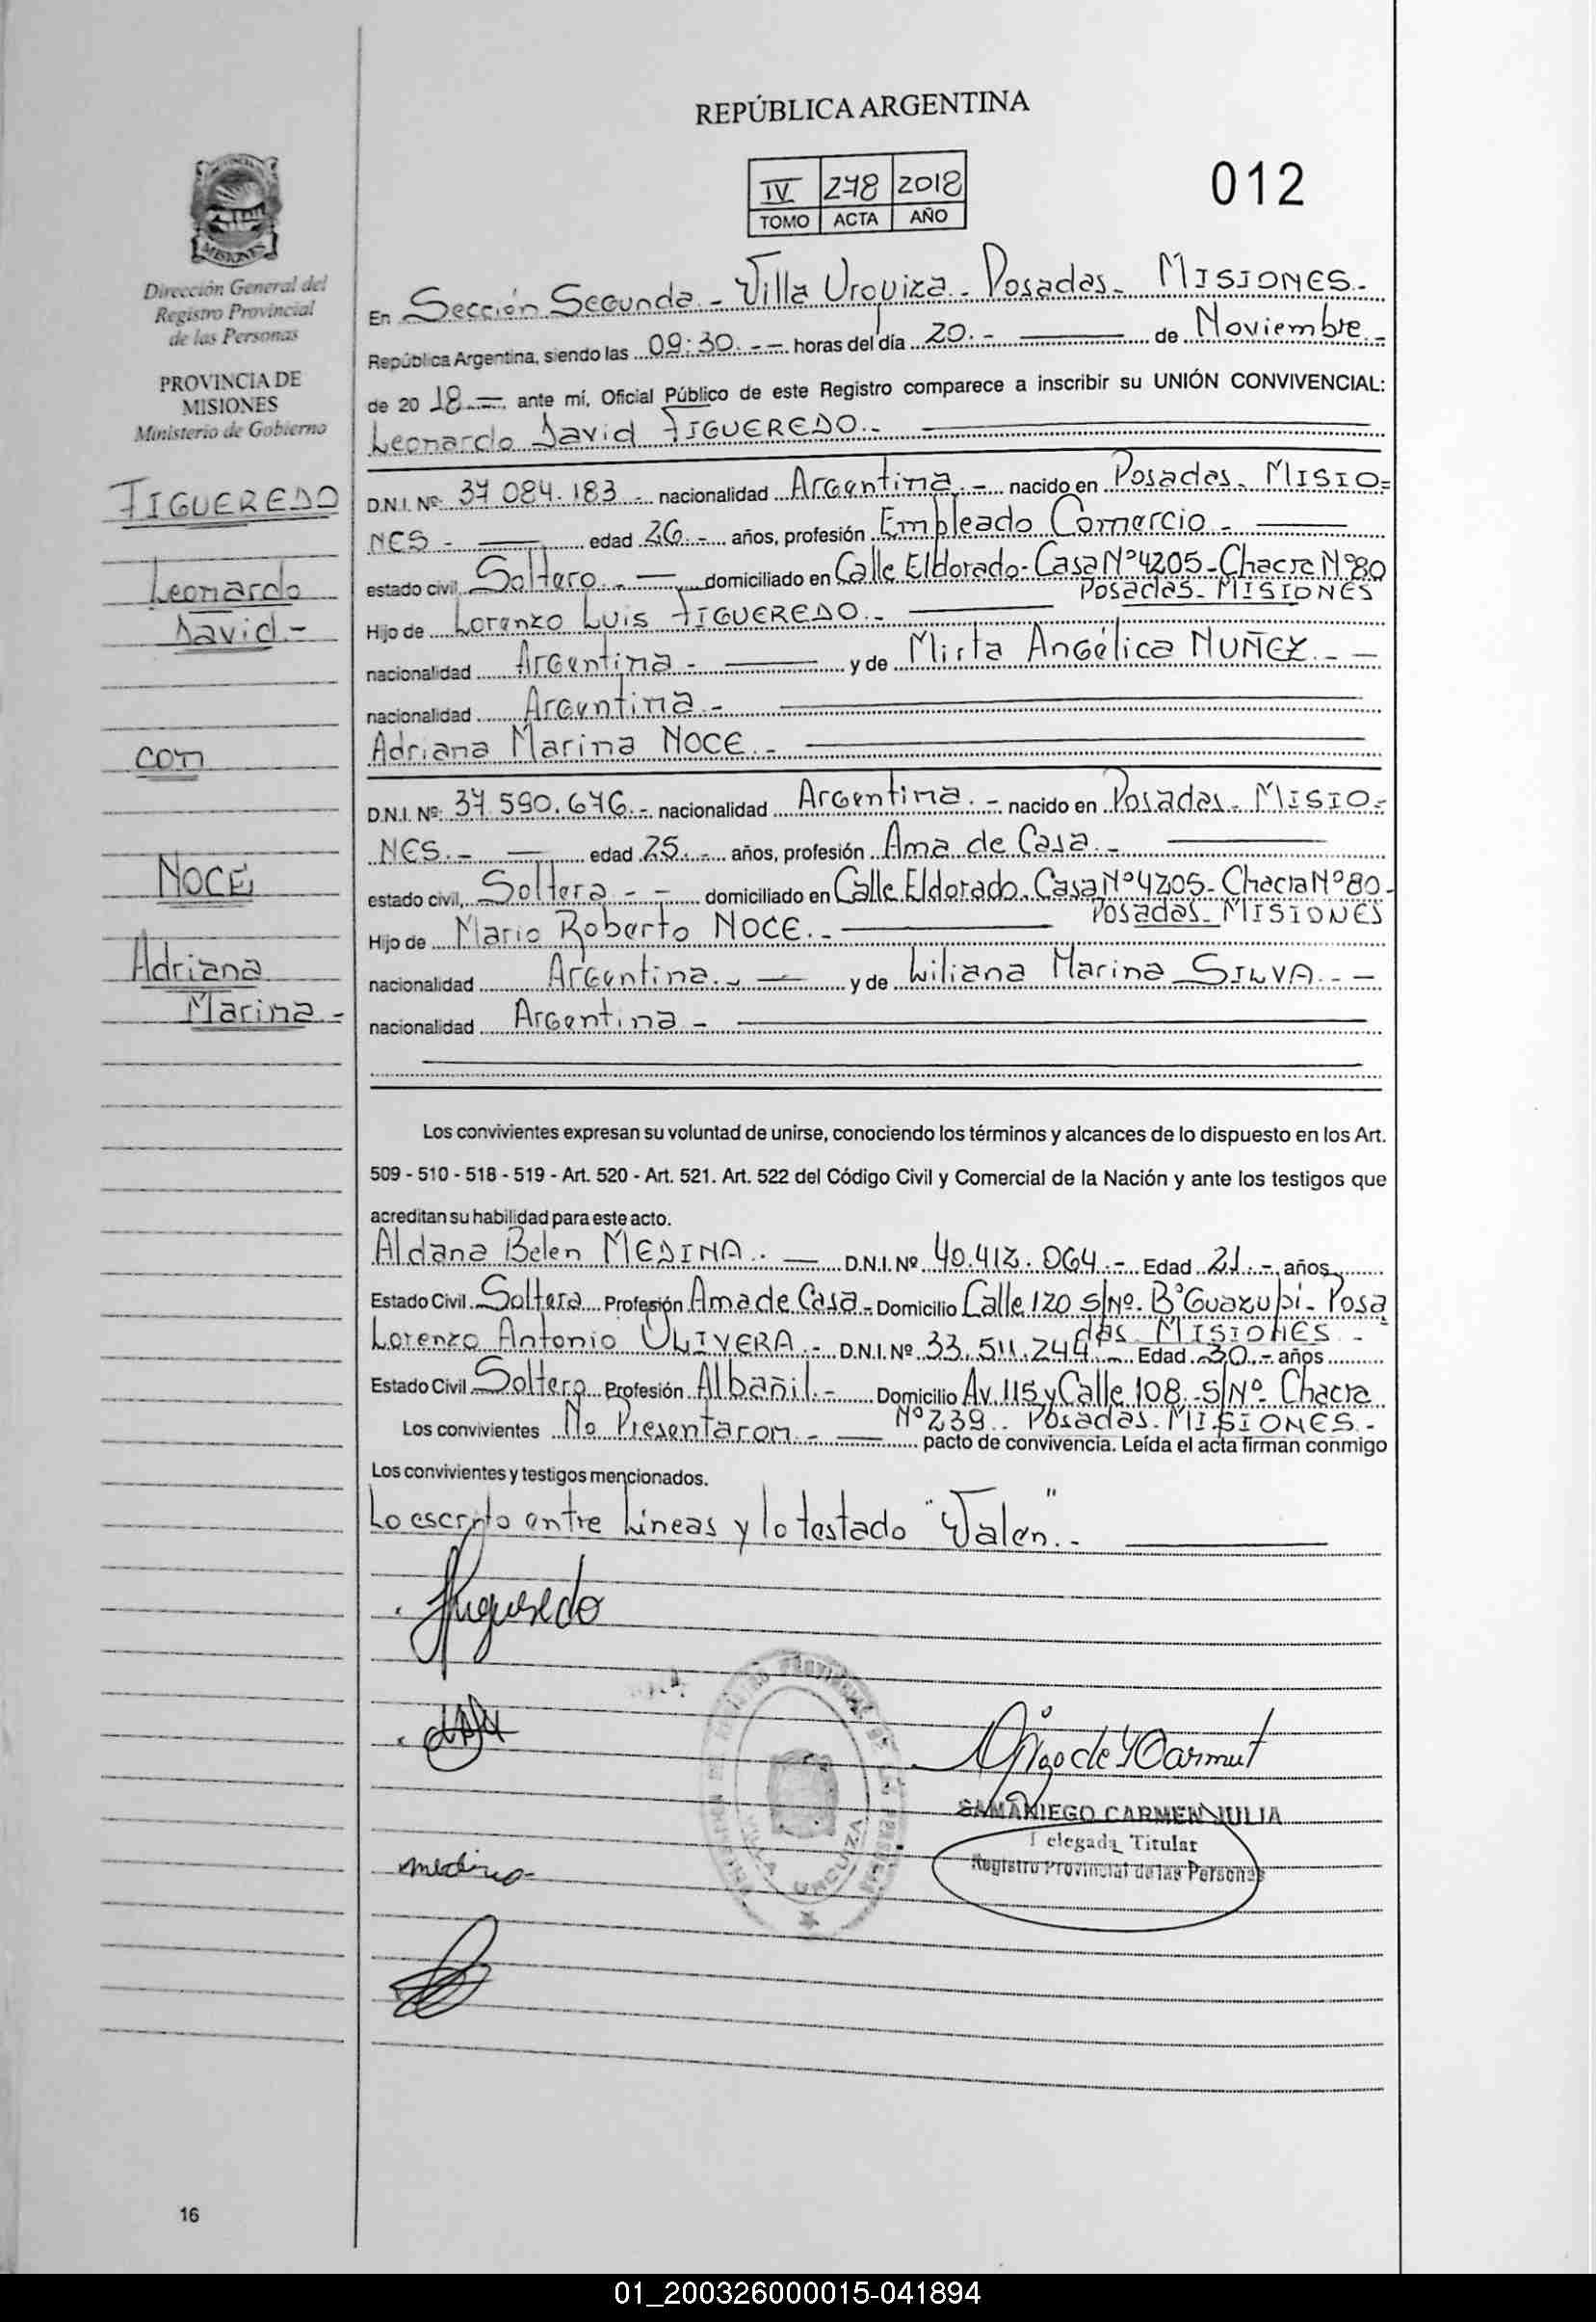 REPÚBLICA ARGENTINA
IV 278 2018
TOMO ACTA AÑO
012
PROVINCIA DE
MISIONES
Dirección General del
Registro Provincial
de las Personas
PROVINCIA DE
MISIONES
Ministerio de Gobierno
FIGUEREDO
Leonardo
David.-
con
NOCE,
Adriana
Marina.-
En Sección Segunda.- Villa Urquiza.- Posadas.- MISIONES.-
República Argentina, siendo las 09:30.-- horas del día 20.- de Noviembre.-
de 2018.- ante mí, Oficial Público de este Registro comparece a inscribir su UNIÓN CONVIVENCIAL:
Leonardo David FIGUEREDO.-
D.N.I. Nº: 37.084.183.- nacionalidad Argentina.- nacido en Posadas.- MISIO=
NES.- edad 26.- años, profesión Empleado Comercio.-
estado civil, Soltero.- domiciliado en Calle Eldorado-Casa Nº4205-Chacra Nº80
Posadas-MISIONES
Hijo de Lorenzo Luis FIGUEREDO.-
nacionalidad Argentina.- y de Mirta Angélica NUÑEZ.--
nacionalidad Argentina.-
Adriana Marina NOCE.-
D.N.I. Nº: 37.590.676.- nacionalidad Argentina.- nacido en Posadas.- MISIO=
NES.- edad 25.- años, profesión Ama de Casa.-
estado civil, Soltera.-- domiciliado en Calle Eldorado-Casa Nº4205-Chacra Nº80-
Posadas-MISIONES
Hijo de Mario Roberto NOCE.-
nacionalidad Argentina.- y de Liliana Marina SILVA.--
nacionalidad Argentina.-
Los convivientes expresan su voluntad de unirse, conociendo los términos y alcances de lo dispuesto en los Art.
509 - 510 - 518 - 519 - Art. 520 - Art. 521. Art. 522 del Código Civil y Comercial de la Nación y ante los testigos que
acreditan su habilidad para este acto.
Aldana Belen MEDINA.- D.N.I. Nº 40.412.064.- Edad 21.- años
Estado Civil Soltera Profesión Ama de Casa.- Domicilio Calle 120 S/Nº- BºGuazupi- Posa
das MISIONES.-
Lorenzo Antonio OLIVERA.- D.N.I. Nº 33.511.244.- Edad 30.- años
Estado Civil Soltero Profesión Albañil.- Domicilio Av. 115 y Calle 108-S/Nº- Chacra
Nº239.. Posadas.MISIONES.-
Los convivientes No Presentaron.- pacto de convivencia. Leída el acta firman conmigo
Los convivientes y testigos mencionados.
Lo escrito entre Líneas y lo testado "Valen".-
Figueredo
medina
SAMANIEGO CARMEN JULIA
Delegada Titular
Registro Provincial de las Personas
VILLA URQUIZA
16
01_200326000015-041894